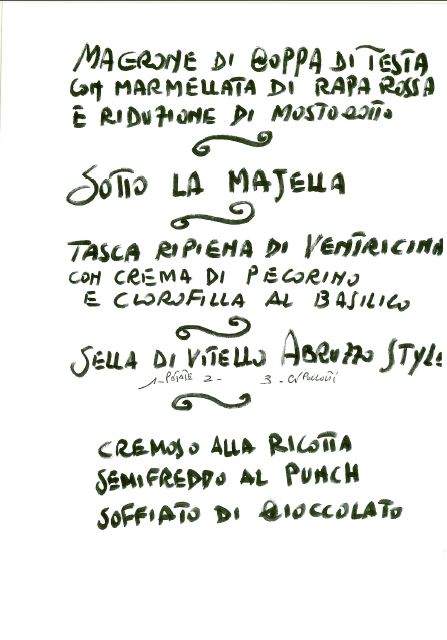 MACRONE DI COPPA DI TESTA
CON MARMELLATA DI RAPA ROSSA
E RIDUZIONE DI MOSTO COTTO
SOTTO LA MAJELLA
TASCA RIPIENA DI VENTRICINA
CON CREMA DI PECORINO
E CLOROFILLA AL BASILICO
SELLA DI VITELLO ABRUZZO STYLE
1- PATATE 2- 3-
CREMOSO ALLA RICOTTA
SEMIFREDDO AL PUNCH
SOFFIATO DI CIOCCOLATO